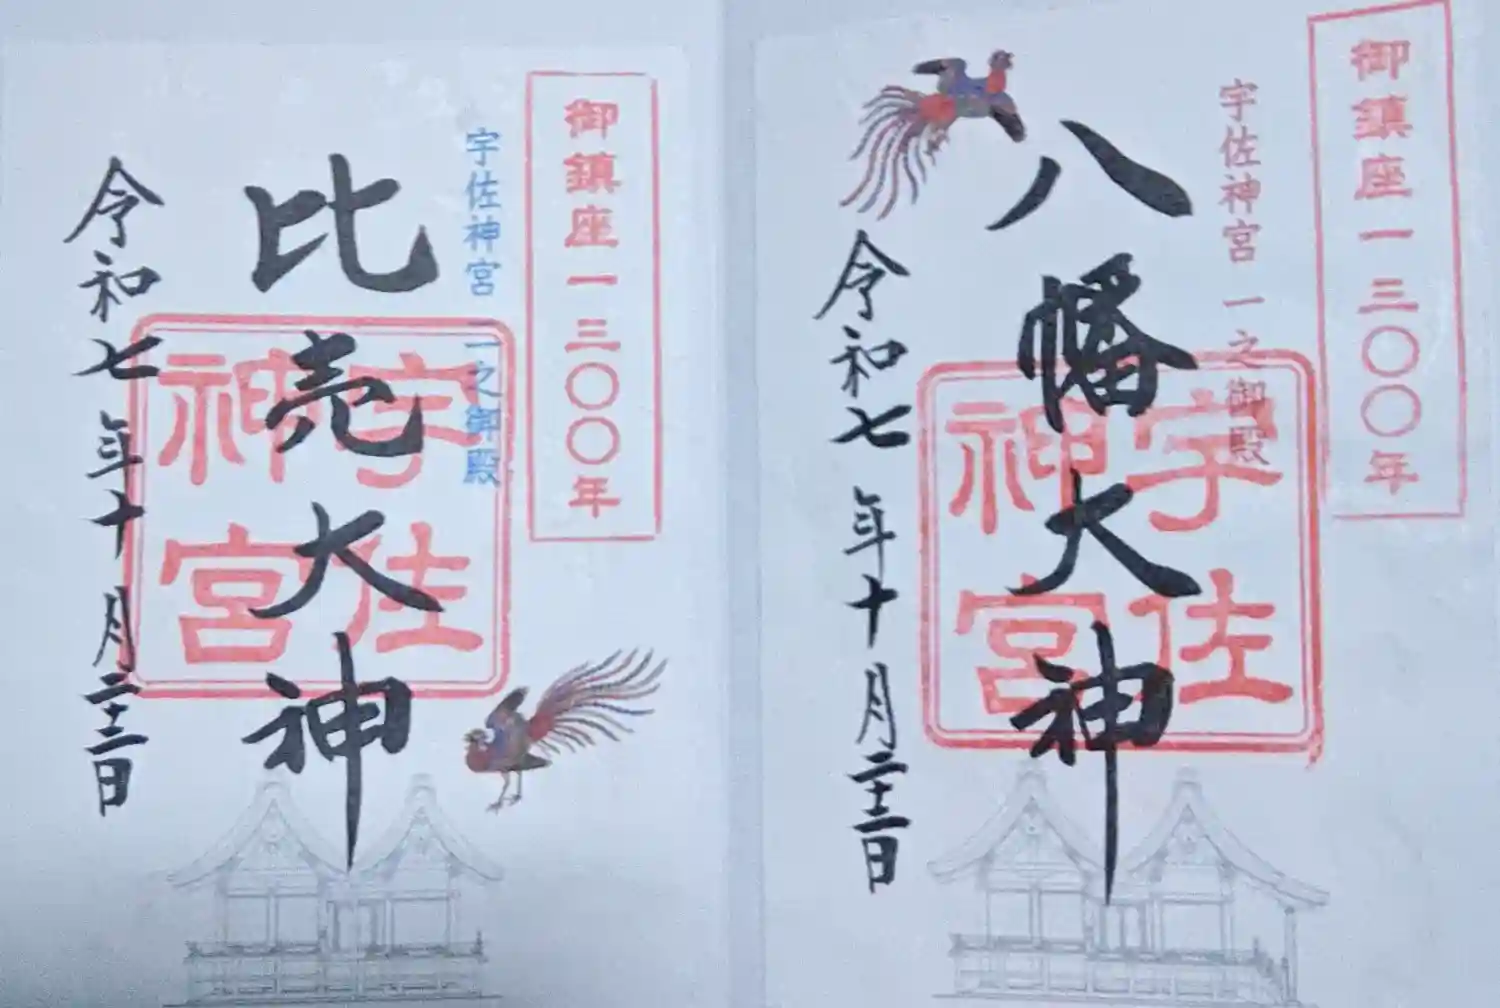 御鎮座一三〇〇年
宇佐神宮 一之御殿
八幡大神
宇佐
神宮
令和七年十月二十二日
御鎮座一三〇〇年
宇佐神宮 二之御殿
比売大神
宇佐
神宮
令和七年十月二十二日